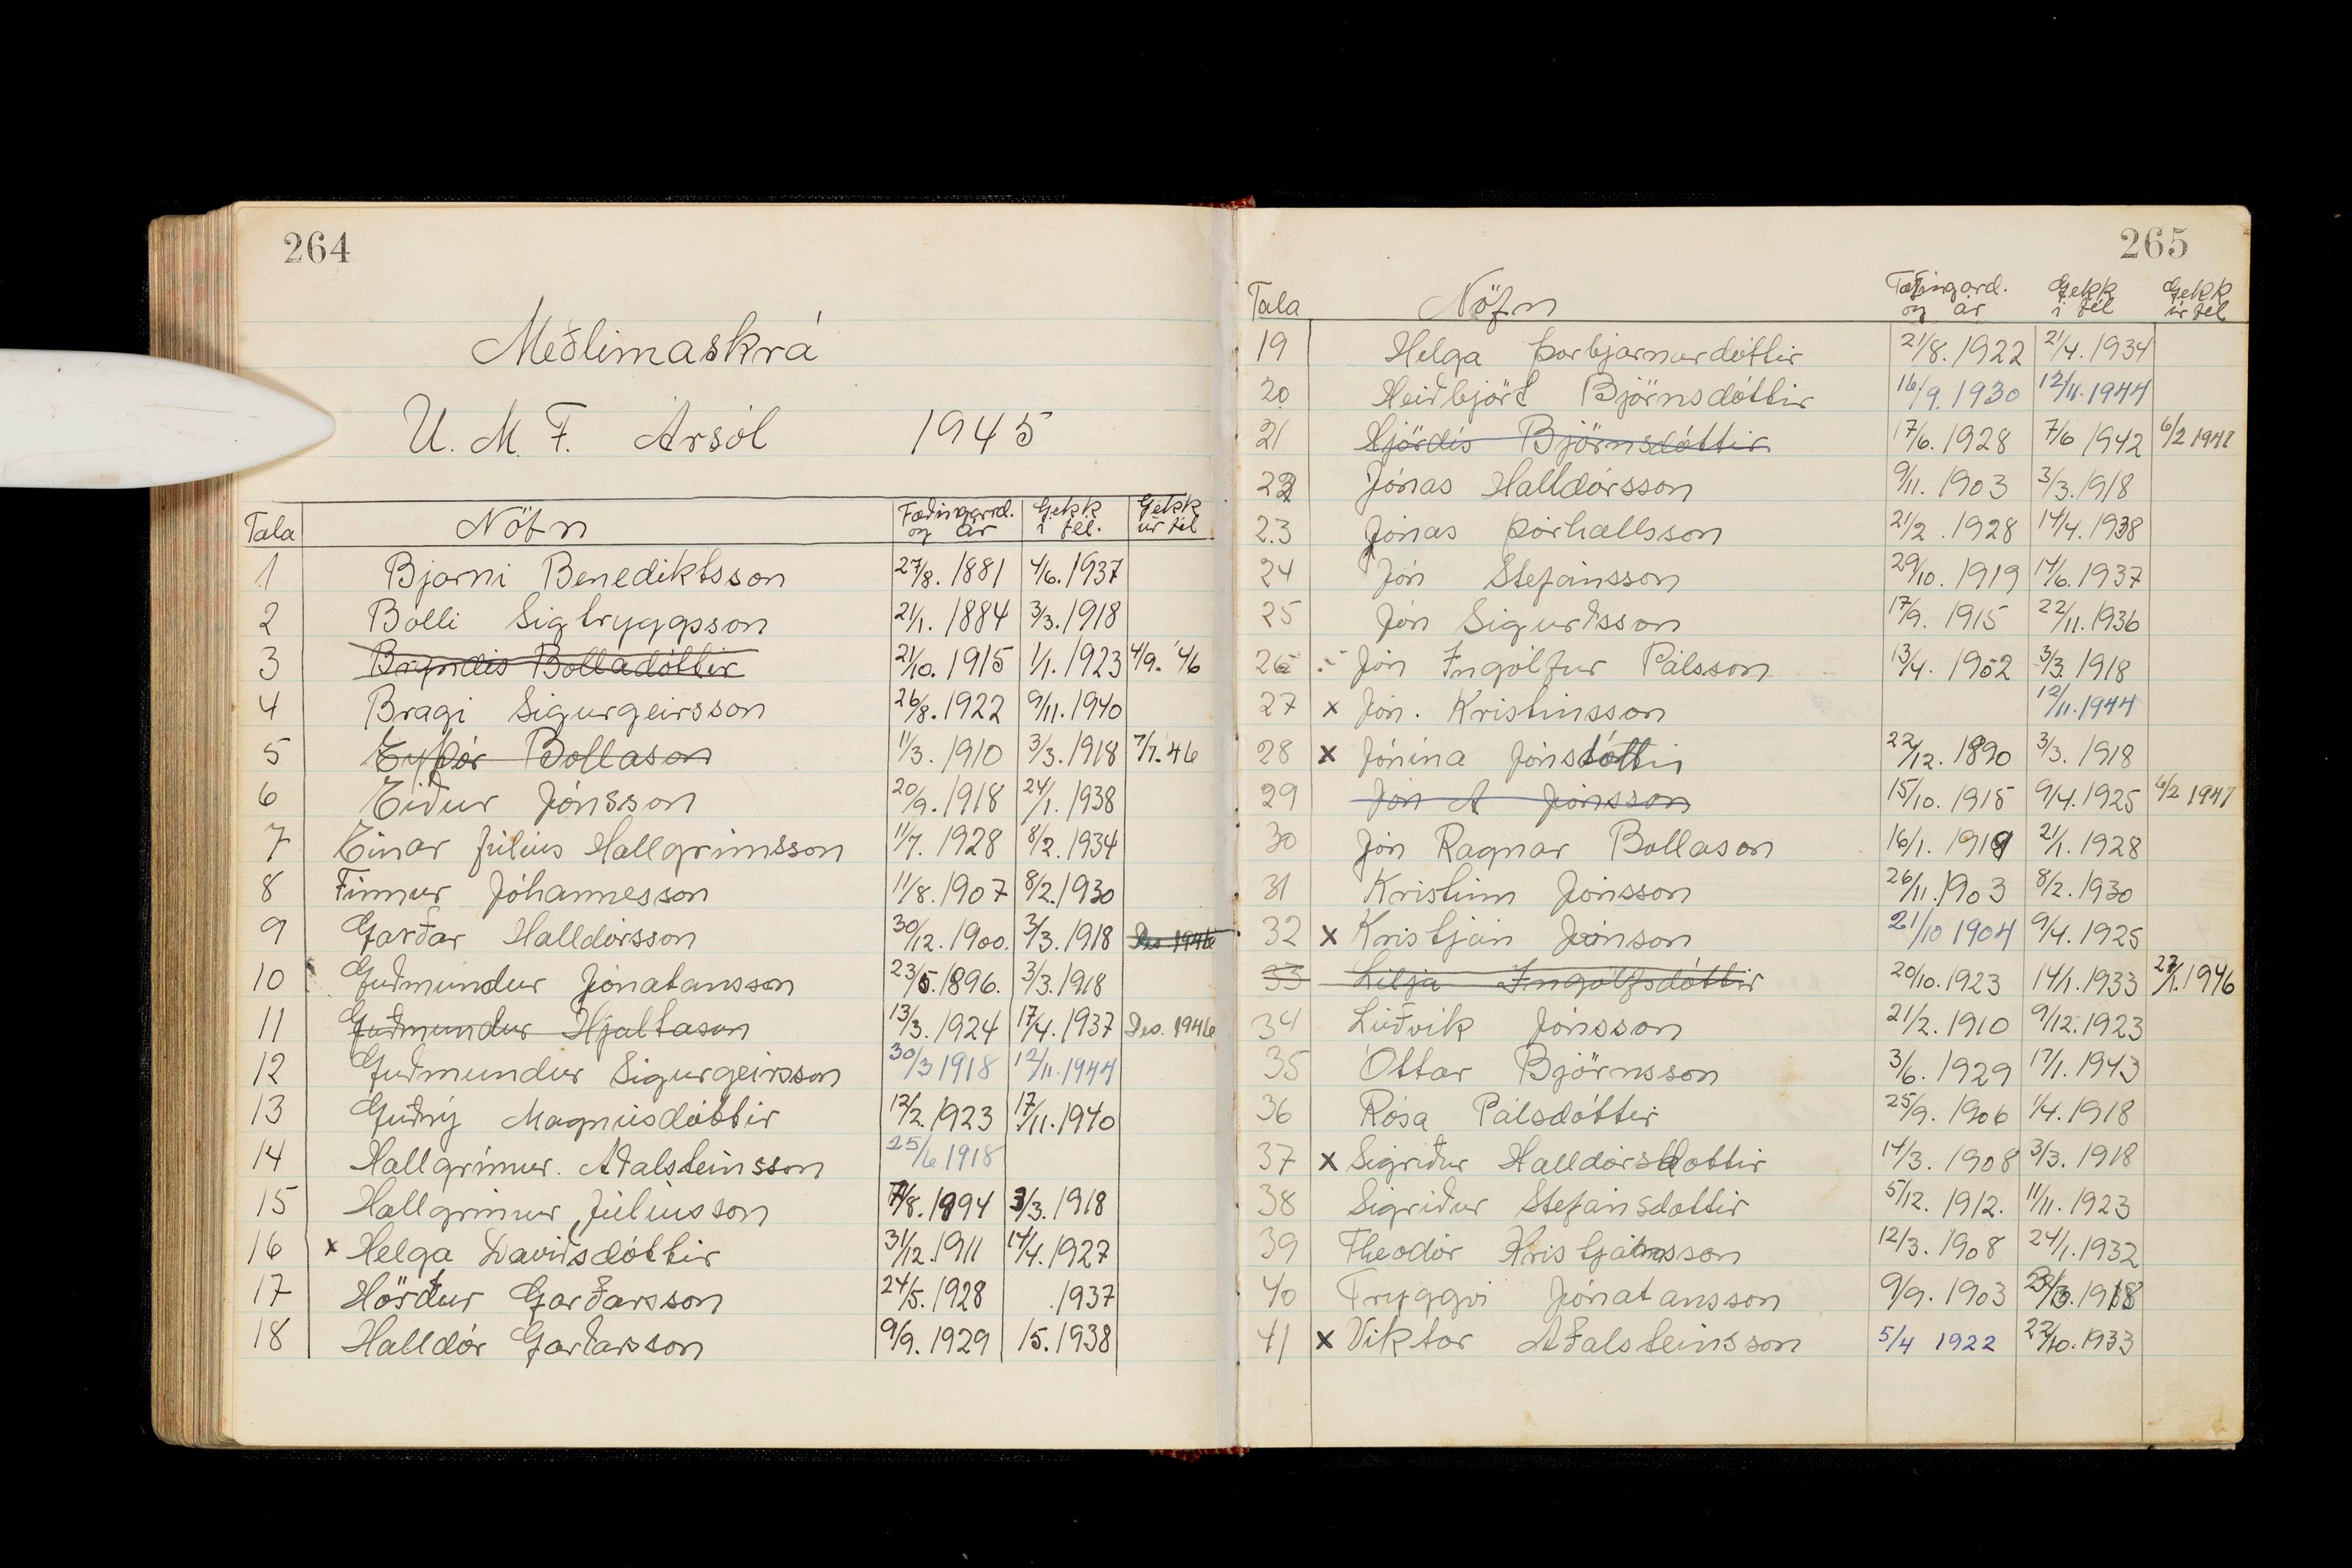 264
Meðlimaskrá
U. M. F. Ársól 1945
Tala Nöfn Fæðingard. og ár Gekk í fél. Gekk úr fél
1 Bjarni Benediktsson 27/8. 1881 4/6. 1937
2 Bolli Sigtryggsson 21/1. 1884 3/3. 1918
3 Bryndís Bolladóttir 21/10. 1915 1/1. 1923 4/9. '46
4 Bragi Sigurgeirsson 26/8. 1922 9/11. 1940
5 Eyþór Bollason 11/3. 1910 3/3. 1918 7/7. 46
6 Eiður Jónsson 20/9. 1918 24/1. 1938
7 Einar Júlíus Hallgrímsson 11/7. 1928 8/2. 1934
8 Finnur Jóhannesson 11/8. 1907 8/2. 1930
9 Garðar Halldórsson 30/12. 1900. 3/3. 1918 Des 1946
10 Guðmundur Jónatansson 23/5. 1896. 3/3. 1918
11 Guðmundur Hjaltason 13/3. 1924 17/4. 1937 Des. 1946
12 Guðmundur Sigurgeirsson 30/3 1918 12/11. 1944
13 Guðný Magnúsdóttir 12/2. 1923 17/11. 1940
14 Hallgrímur. Aðalsteinsson 25/6 1918
15 Hallgrímur Júlíusson 1894 3/3. 1918
16 x Helga Davíðsdóttir 31/12. 1911 14/4. 1927
17 Hörður Garðarsson 24/5. 1928 .1937
18 Halldór Garðarsson 9/9. 1929 15. 1938
265
Tala Nöfn Fæðingard. og ár Gekk í fél Gekk úr fél
19 Helga Þorbjarnardóttir 21/8. 1922 21/4. 1934
20 Heiðbjört Björnsdóttir 16/9. 1930 12/11. 1944
21 Hjördís Björnsdóttir 17/6. 1928 7/6 1942 6/2 1947
22 Jónas Halldórsson 9/11. 1903 3/3. 1918
23 Jónas Þórhallsson 21/2. 1928 14/4. 1938
24 Jón Stefánsson 29/10. 1919 14/6. 1937
25 Jón Sigurðsson 17/9. 1915 22/11. 1936
26 Jón Ingólfur Pálsson 13/4. 1902 3/3. 1918
27 x Jón. Kristinsson 12/11. 1944
28 x Jónína Jónsdóttir 22/12. 1890 3/3. 1918
29 Jón A Jónsson 15/10. 1915 9/4. 1925 6/2 1947
30 Jón Ragnar Bollason 16/1. 1919 21/1. 1928
31 Kristinn Jónsson 26/11. 1903 8/2. 1930
32 x Kristján Jónson 21/10 1904 9/4. 1925
33 Lilja Ingólfsdóttir 20/10. 1923 14/1. 1933 27/1. 1946
34 Lúðvík Jónsson 21/2. 1910 9/12. 1923
35 Óttar Björnsson 3/6. 1929 17/1. 1943
36 Rósa Pálsdóttir 25/9. 1906 1/4. 1918
37 x Sigríður Halldórsdottir 14/3. 1908 3/3. 1918
38 Sigríður Stefánsdottir 5/12. 1912. 11/11. 1923
39 Theodór Kristjánsson 12/3. 1908 24/1. 1932
40 Tryggvi Jónatansson 9/9. 1903 1918
41 x Viktor Aðalsteinsson 5/4 1922 22/10. 1933